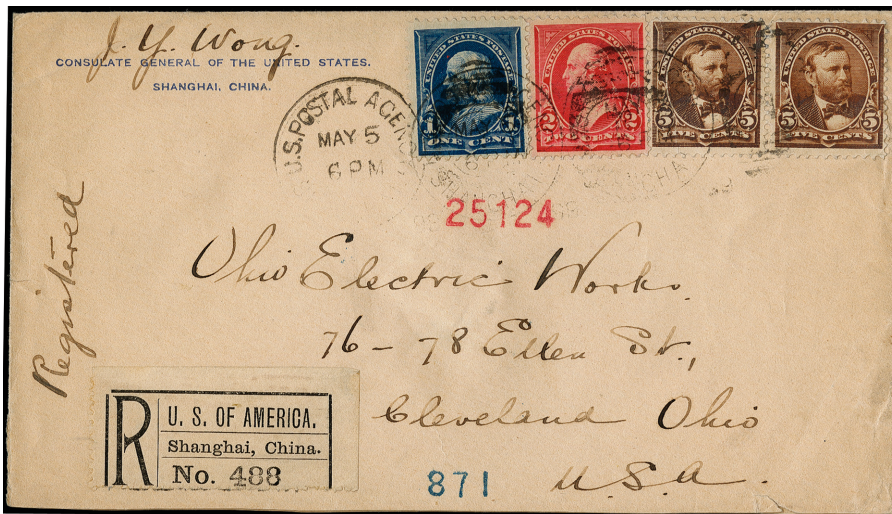 J. Y. Wong.
CONSULATE GENERAL OF THE UNITED STATES.
SHANGHAI, CHINA.
U.S. POSTAL AGENCY
MAY 5
6 PM
UNITED STATES POSTAGE
1 1
ONE CENT
UNITED STATES POSTAGE
2 2
TWO CENTS
UNITED STATES POSTAGE
5 5
FIVE CENTS
UNITED STATES POSTAGE
5 5
FIVE CENTS
SHANGHAI
25124
Registered
Ohio Electric Works.
76 – 78 Ellen St.,
Cleveland Ohio
U.S.A.
R
U. S. OF AMERICA.
Shanghai, China.
No. 488
871